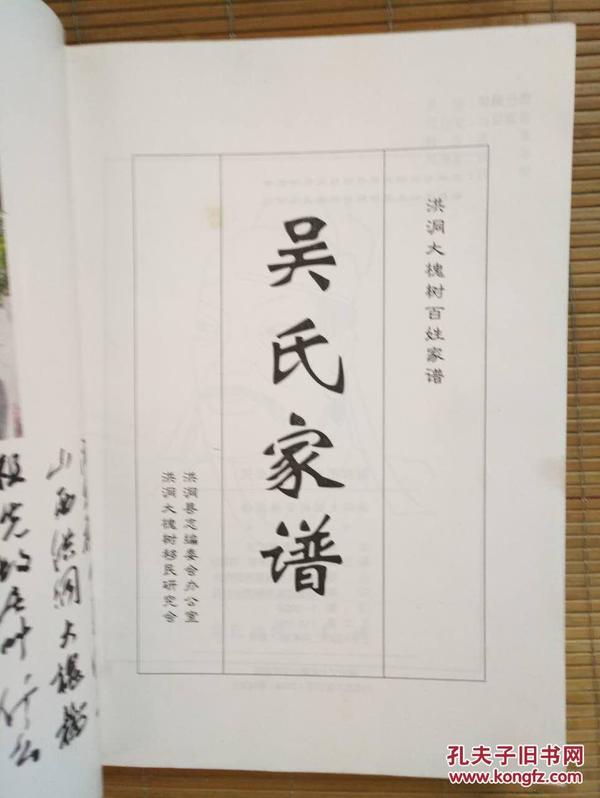 洪洞大槐树百姓家谱
吴氏家谱
洪洞县志编委会办公室
洪洞大槐树移民研究会
山西洪洞大槐树
祖先的老叶什么
孔夫子旧书网
www.kongfz.com